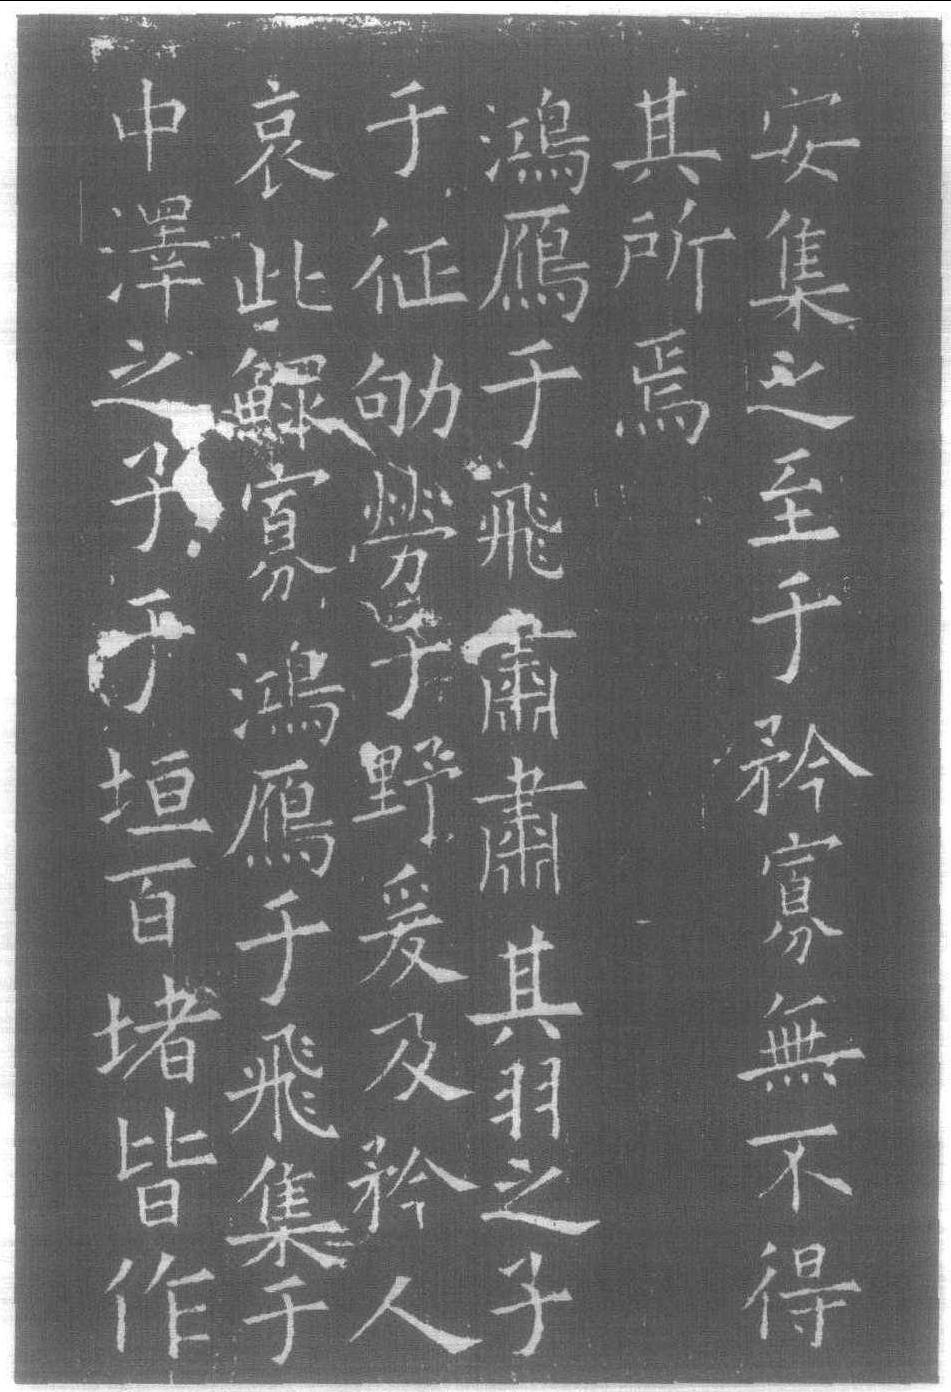 安集之至于矜寡無不得
其所焉
鴻鴈于飛肅肅其羽之子
于征劬勞于野爰及矜人
哀此鰥寡鴻鴈于飛集于
中澤之子于垣百堵皆作